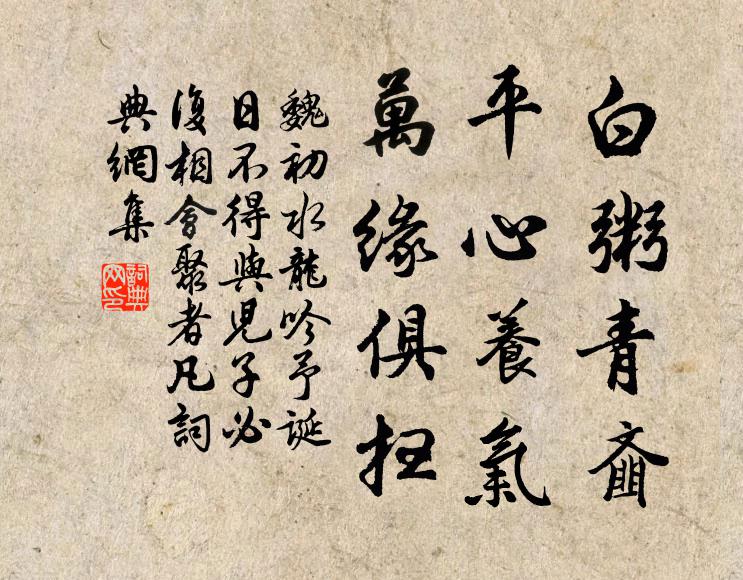 白粥青齑
平心養氣
萬緣俱扫
魏初水龍吟予誕
日不得與児子必
復相會聚者凡詞
典網集
詞典
网印